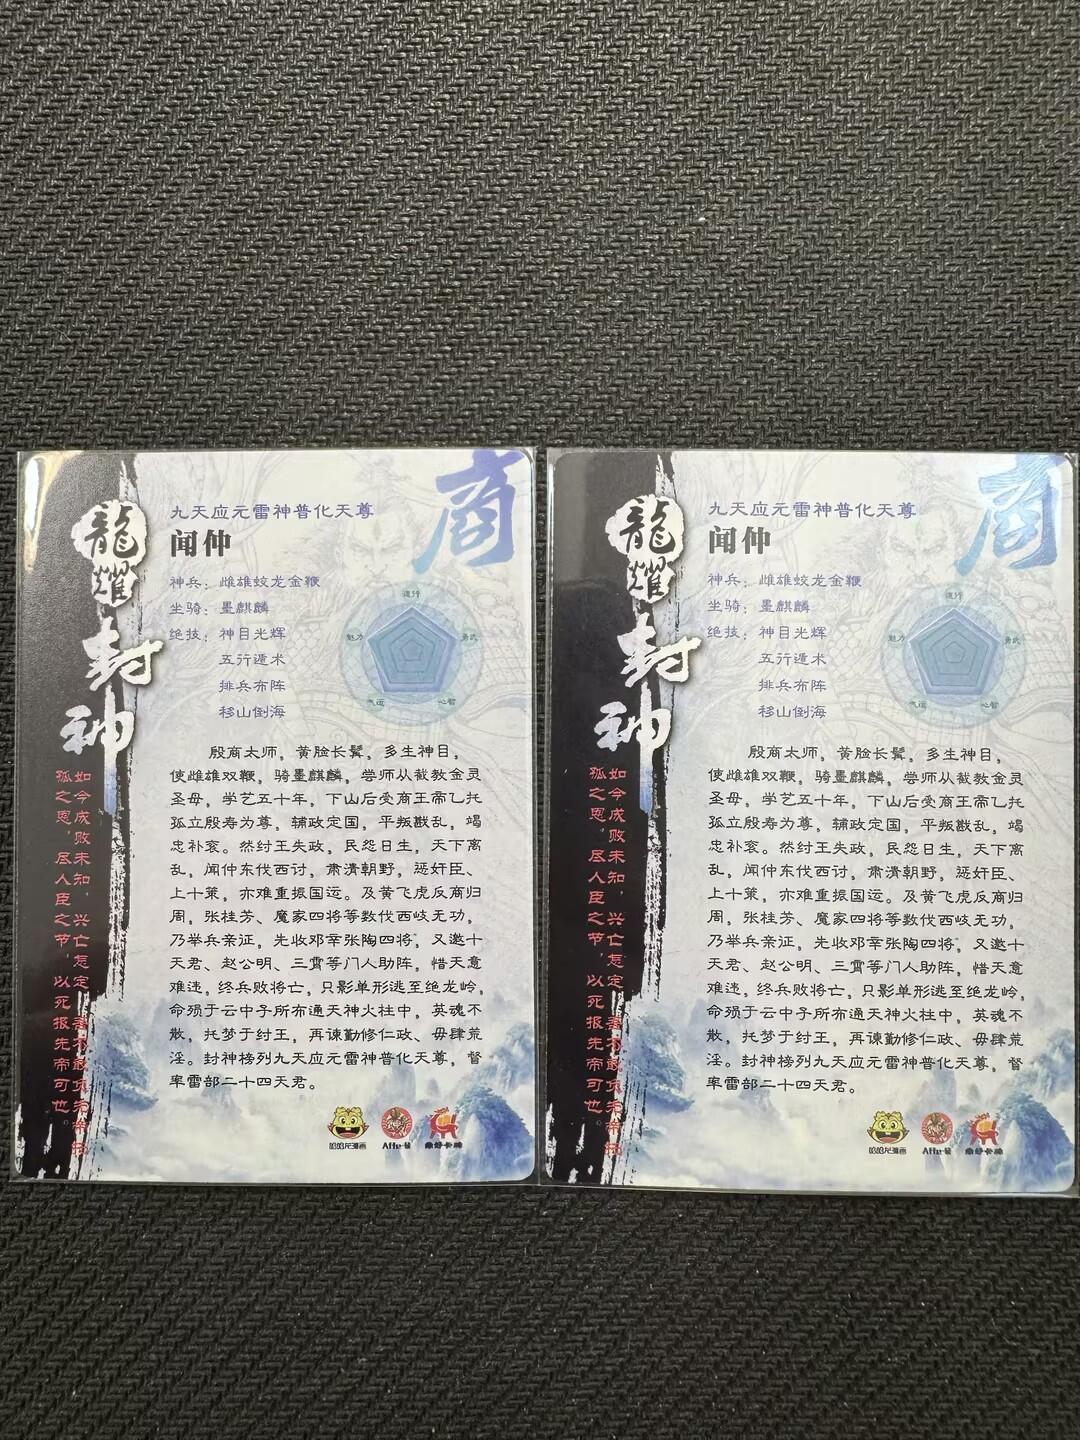 商
龍耀封神
九天应元雷神普化天尊
闻仲
神兵：雌雄蛟龙金鞭
坐骑：墨麒麟
绝技：神目光辉
五行遁术
排兵布阵
移山倒海
道行
魅力
勇武
气运
心智
殷商太师，黄脸长髯，多生神目，
使雌雄双鞭，骑墨麒麟，尝师从截教金灵
圣母，学艺五十年，下山后受商王帝乙托
孤立殷寿为尊，辅政定国，平叛戡乱，竭
忠补衮。然纣王失政，民怨日生，天下离
乱，闻仲东伐西讨，肃清朝野，惩奸臣、
上十策，亦难重振国运。及黄飞虎反商归
周，张桂芳、魔家四将等数伐西岐无功，
乃举兵亲征，先收邓辛张陶四将，又邀十
天君、赵公明、三霄等门人助阵，惜天意
难违，终兵败将亡，只影单形逃至绝龙岭，
命殒于云中子所布通天神火柱中，英魂不
散，托梦于纣王，再谏勤修仁政、毋肆荒
淫。封神榜列九天应元雷神普化天尊，督
率雷部二十四天君。
如今成败未知，兴亡怎定，
孤之恩，尽人臣之节，以死报先帝可也。
哈哈龙漫画
鼎好卡牌
商
龍耀封神
九天应元雷神普化天尊
闻仲
神兵：雌雄蛟龙金鞭
坐骑：墨麒麟
绝技：神目光辉
五行遁术
排兵布阵
移山倒海
道行
魅力
勇武
气运
心智
殷商太师，黄脸长髯，多生神目，
使雌雄双鞭，骑墨麒麟，尝师从截教金灵
圣母，学艺五十年，下山后受商王帝乙托
孤立殷寿为尊，辅政定国，平叛戡乱，竭
忠补衮。然纣王失政，民怨日生，天下离
乱，闻仲东伐西讨，肃清朝野，惩奸臣、
上十策，亦难重振国运。及黄飞虎反商归
周，张桂芳、魔家四将等数伐西岐无功，
乃举兵亲征，先收邓辛张陶四将，又邀十
天君、赵公明、三霄等门人助阵，惜天意
难违，终兵败将亡，只影单形逃至绝龙岭，
命殒于云中子所布通天神火柱中，英魂不
散，托梦于纣王，再谏勤修仁政、毋肆荒
淫。封神榜列九天应元雷神普化天尊，督
率雷部二十四天君。
如今成败未知，兴亡怎定，
孤之恩，尽人臣之节，以死报先帝可也。
哈哈龙漫画
鼎好卡牌